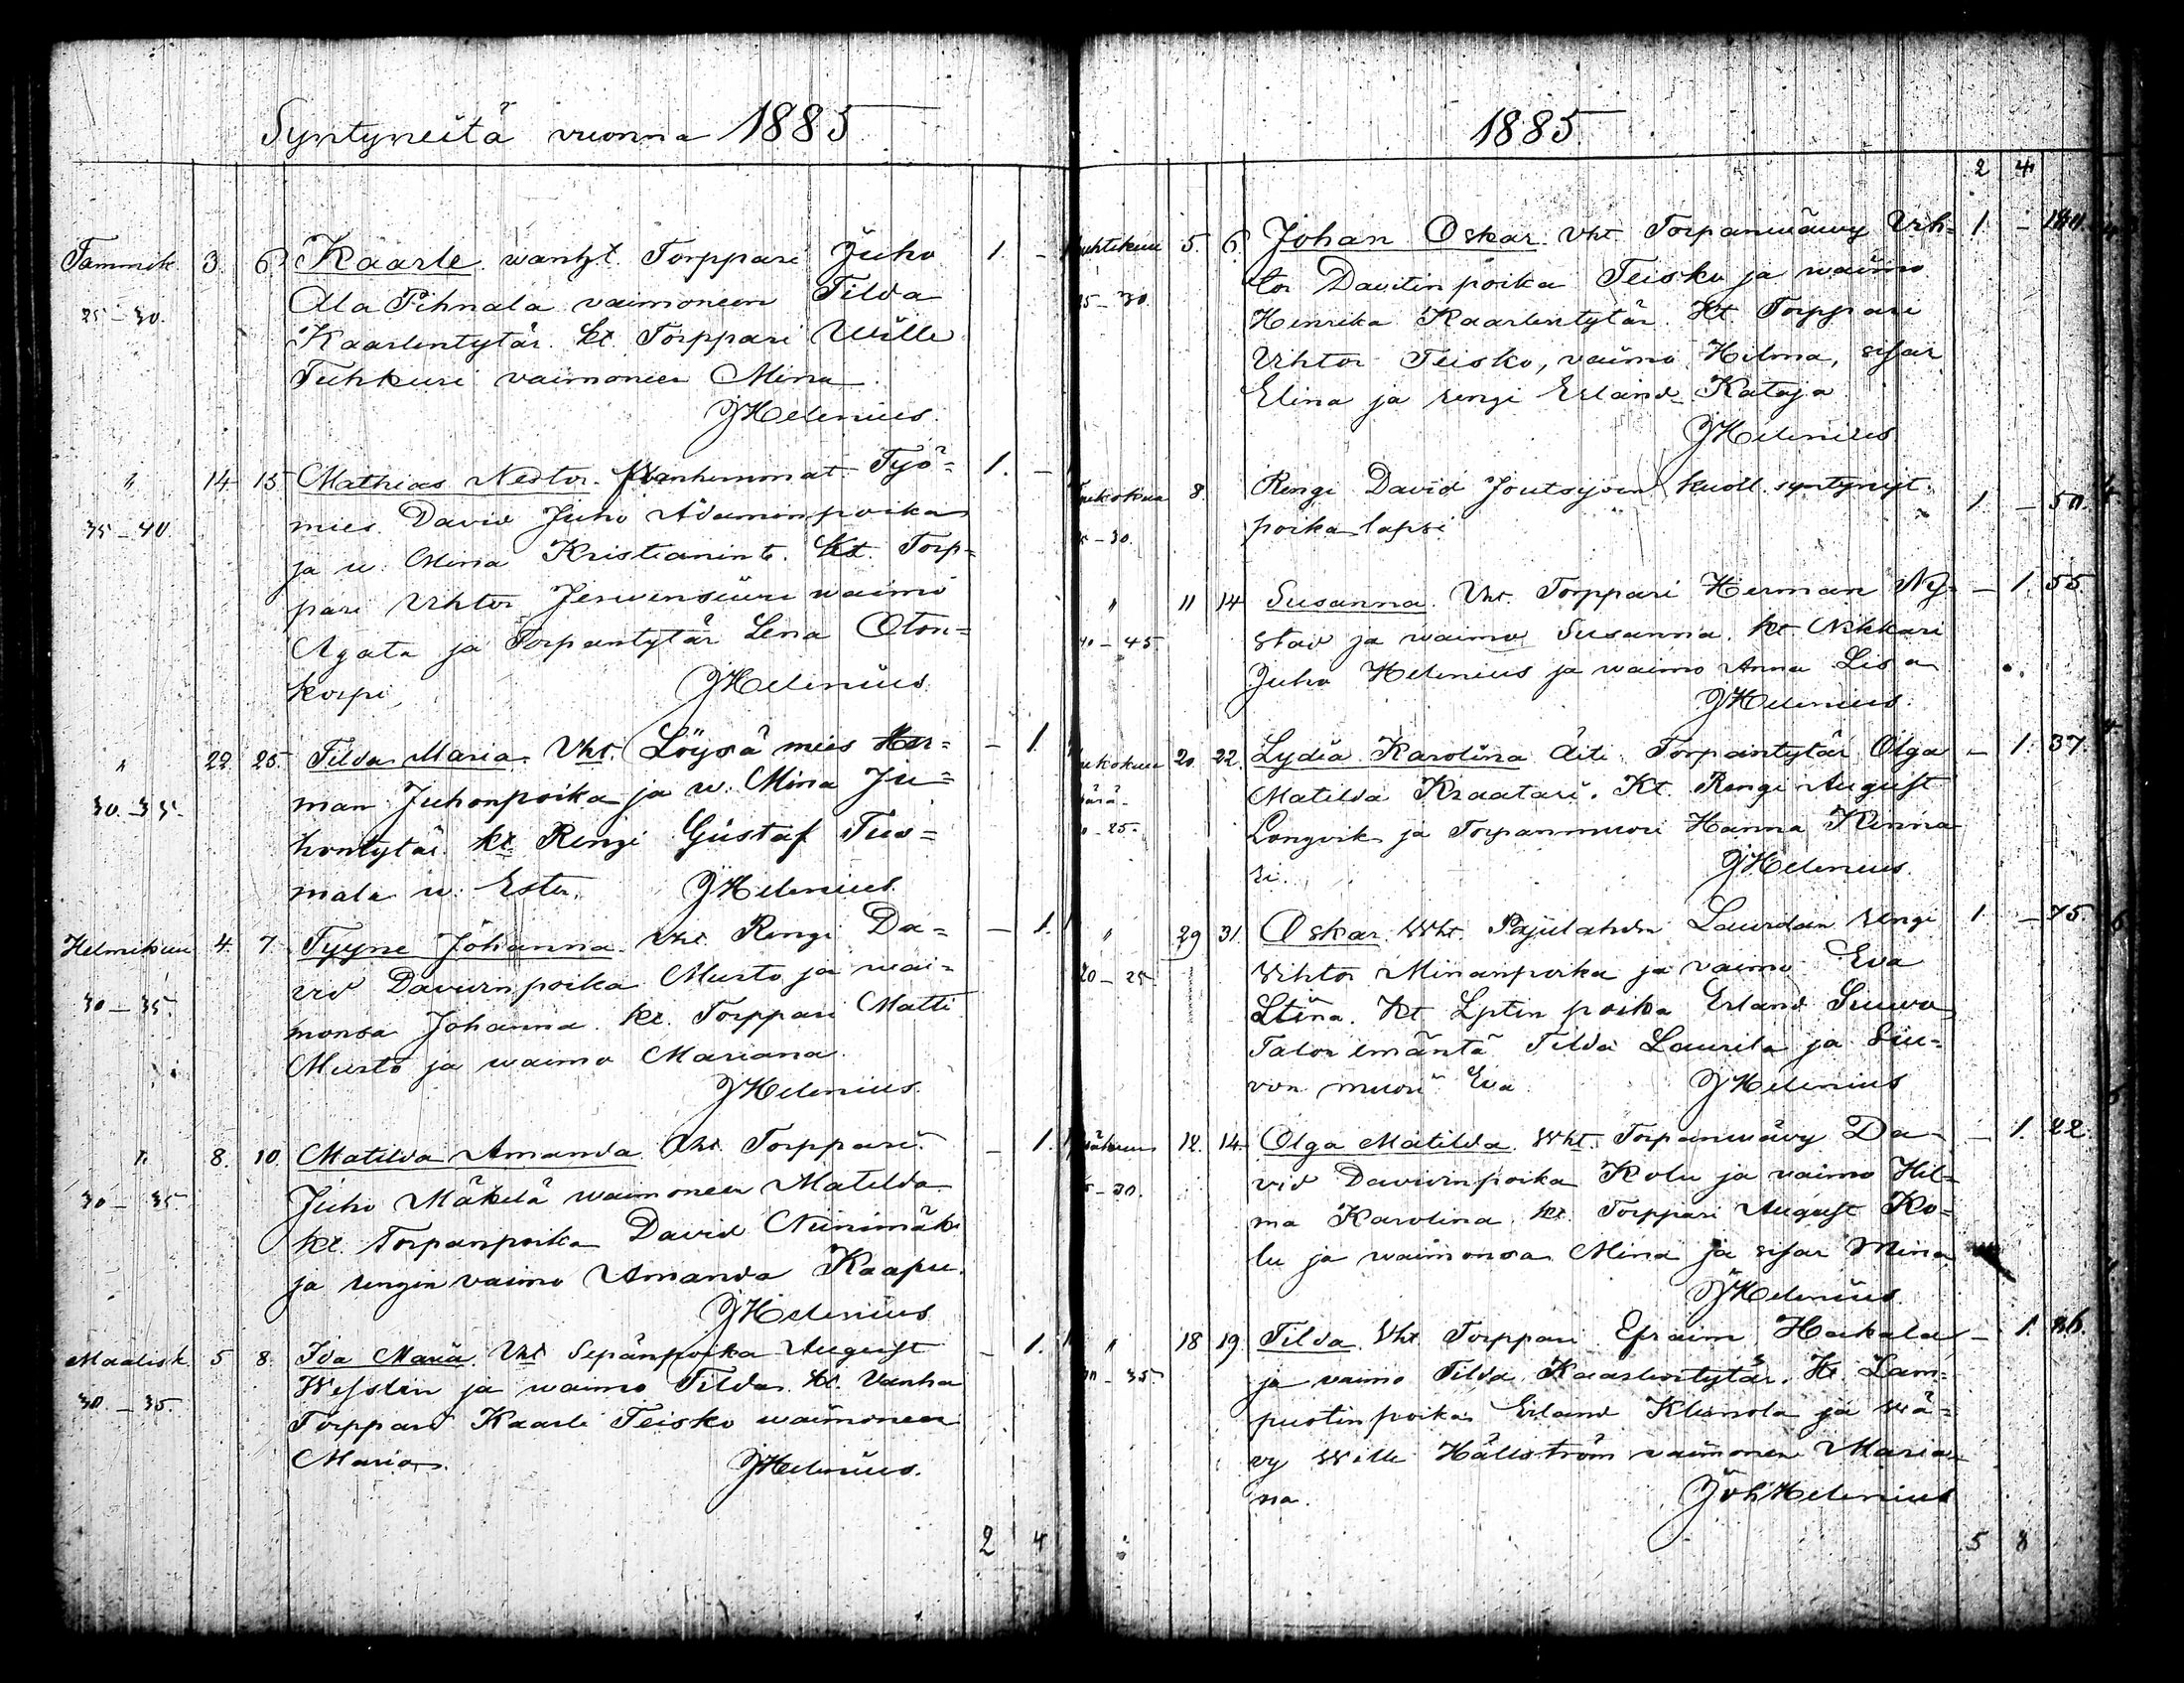 Syntyneitä vuonna 1885
Tammik 3. 6. Kaarle wanht. Torppari Juho 1. -
Ala Pihnala vaimoneen Tilda
25-30.
Kaarlentytär. kt. Torppari Wille
Tuhkuri vaimoneen Mina.
JHelenius.
" 14 15 Mathias Nestor. Wanhemmat Työ= 1. -
mies David Juho Adaminpoika
35-40.
ja w. Mina Kristianint. kt. Torp=
pari Vihtor Jerwensuun waimo
Agata ja Torpantytär Lena
korpi, JHelenius.
" 22. 25. Tilda Maria. Vht. Löysä mies Her= - 1.
man Juhonpoika ja w. Mina Ju=
30-35.
hontytär. kt Rengi Gustaf Tuo=
mala w. Ester. JHelenius.
Helmikuu 4. 7. Tyyne Johanna. Vht. Rengi Da= - 1.
vid Davidinpoika Musto ja wai=
30-35.
monsa Johanna. kt. Torppari Matti
Musto ja waimo Mariana.
JHelenius.
" 8. 10. Matilda Amanda. Vht. Torppari - 1.
Juho Mäkelä waimoneen Matilda
30-35
kt. Torpanpoika David Niinimäki
ja rengin vaimo Amanda Kaapu.
JHelenius
Maalisk 5 8. Ida Maria. Vht Sepänpoika August - 1.
ja waimo Tilda. kt. Vanha
30.-35.
Torppari Kaarle Teisko waimoneen
Maria. JHelenius.
2 4
1885.
2 4
huhtikuu 5. 6. Johan Oskar. Vht. Torpanwäwy Vih= 1. -
tor Davitinpoika Teisko ja waimo
25-30.
Henrika Kaarlentytär. Kt. Torppari
Vihtor Teisko, vaimo Hilma, sisar
Elina ja rengi Erland Kataja
JHelenius
Toukokuu 8. Rengi David Joutsijoen kuoll. syntynyt 1. - 50.
poika lapsi
" 11 14 Susanna. Vht. Torppari Herman Ny= - 1. 55
stad ja waimo Susanna. kt. Nikkari
40-45
Juho Helenius ja waimo Anna Lisa
JHelenius.
Toukokuu 20. 22. Lydia Karolina Äiti Torpantytär Olga - 1. 37.
Matilda Kraatari. Kt. Rengi August
Longvik ja Torpanmuori Hanna Kinna=
ri. JHelenius.
" 29 31. Oskar. Wht. Pajulahden Laurilan rengi 1. - 75.
Wihtor Minanpoika ja vaimo Eva
20-25.
Stina. Kt. poika Erland Suuvo
Talon emäntä Tilda Laurila ja Suu=
von muori Eva. JHelenius
12. 14. Olga Matilda. Wht. Torpanwäwy Da= - 1. 22.
vid Davidinpoika Kolu ja vaimo Hil=
ma Karolina. kt. Torppari August Ko=
lu ja waimonsa Mina ja sisar Mina
JHelenius.
" 18 19. Tilda. Vht. Torppari Efraim Hakala - 1. 36.
ja vaimo Tilda Kaarlentytär. Kt Lam=
puotinpoika Erland Klemola ja wä=
vy Wille Hällström vaimoneen Maria=
na. Joh Helenius
5 8